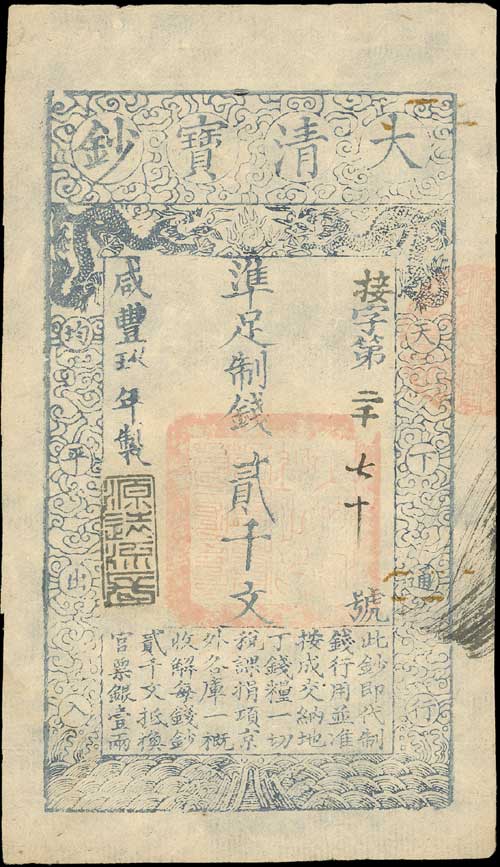 大清寶鈔
天下通行
接字第二千七十號
準足制錢貳千文
咸豐玖年製
均平出入
此鈔即代制
錢行用並准
按成交納地
丁錢糧一切
稅課捐項京
外各庫一概
收解每錢鈔
貳千文抵換
官票銀壹兩